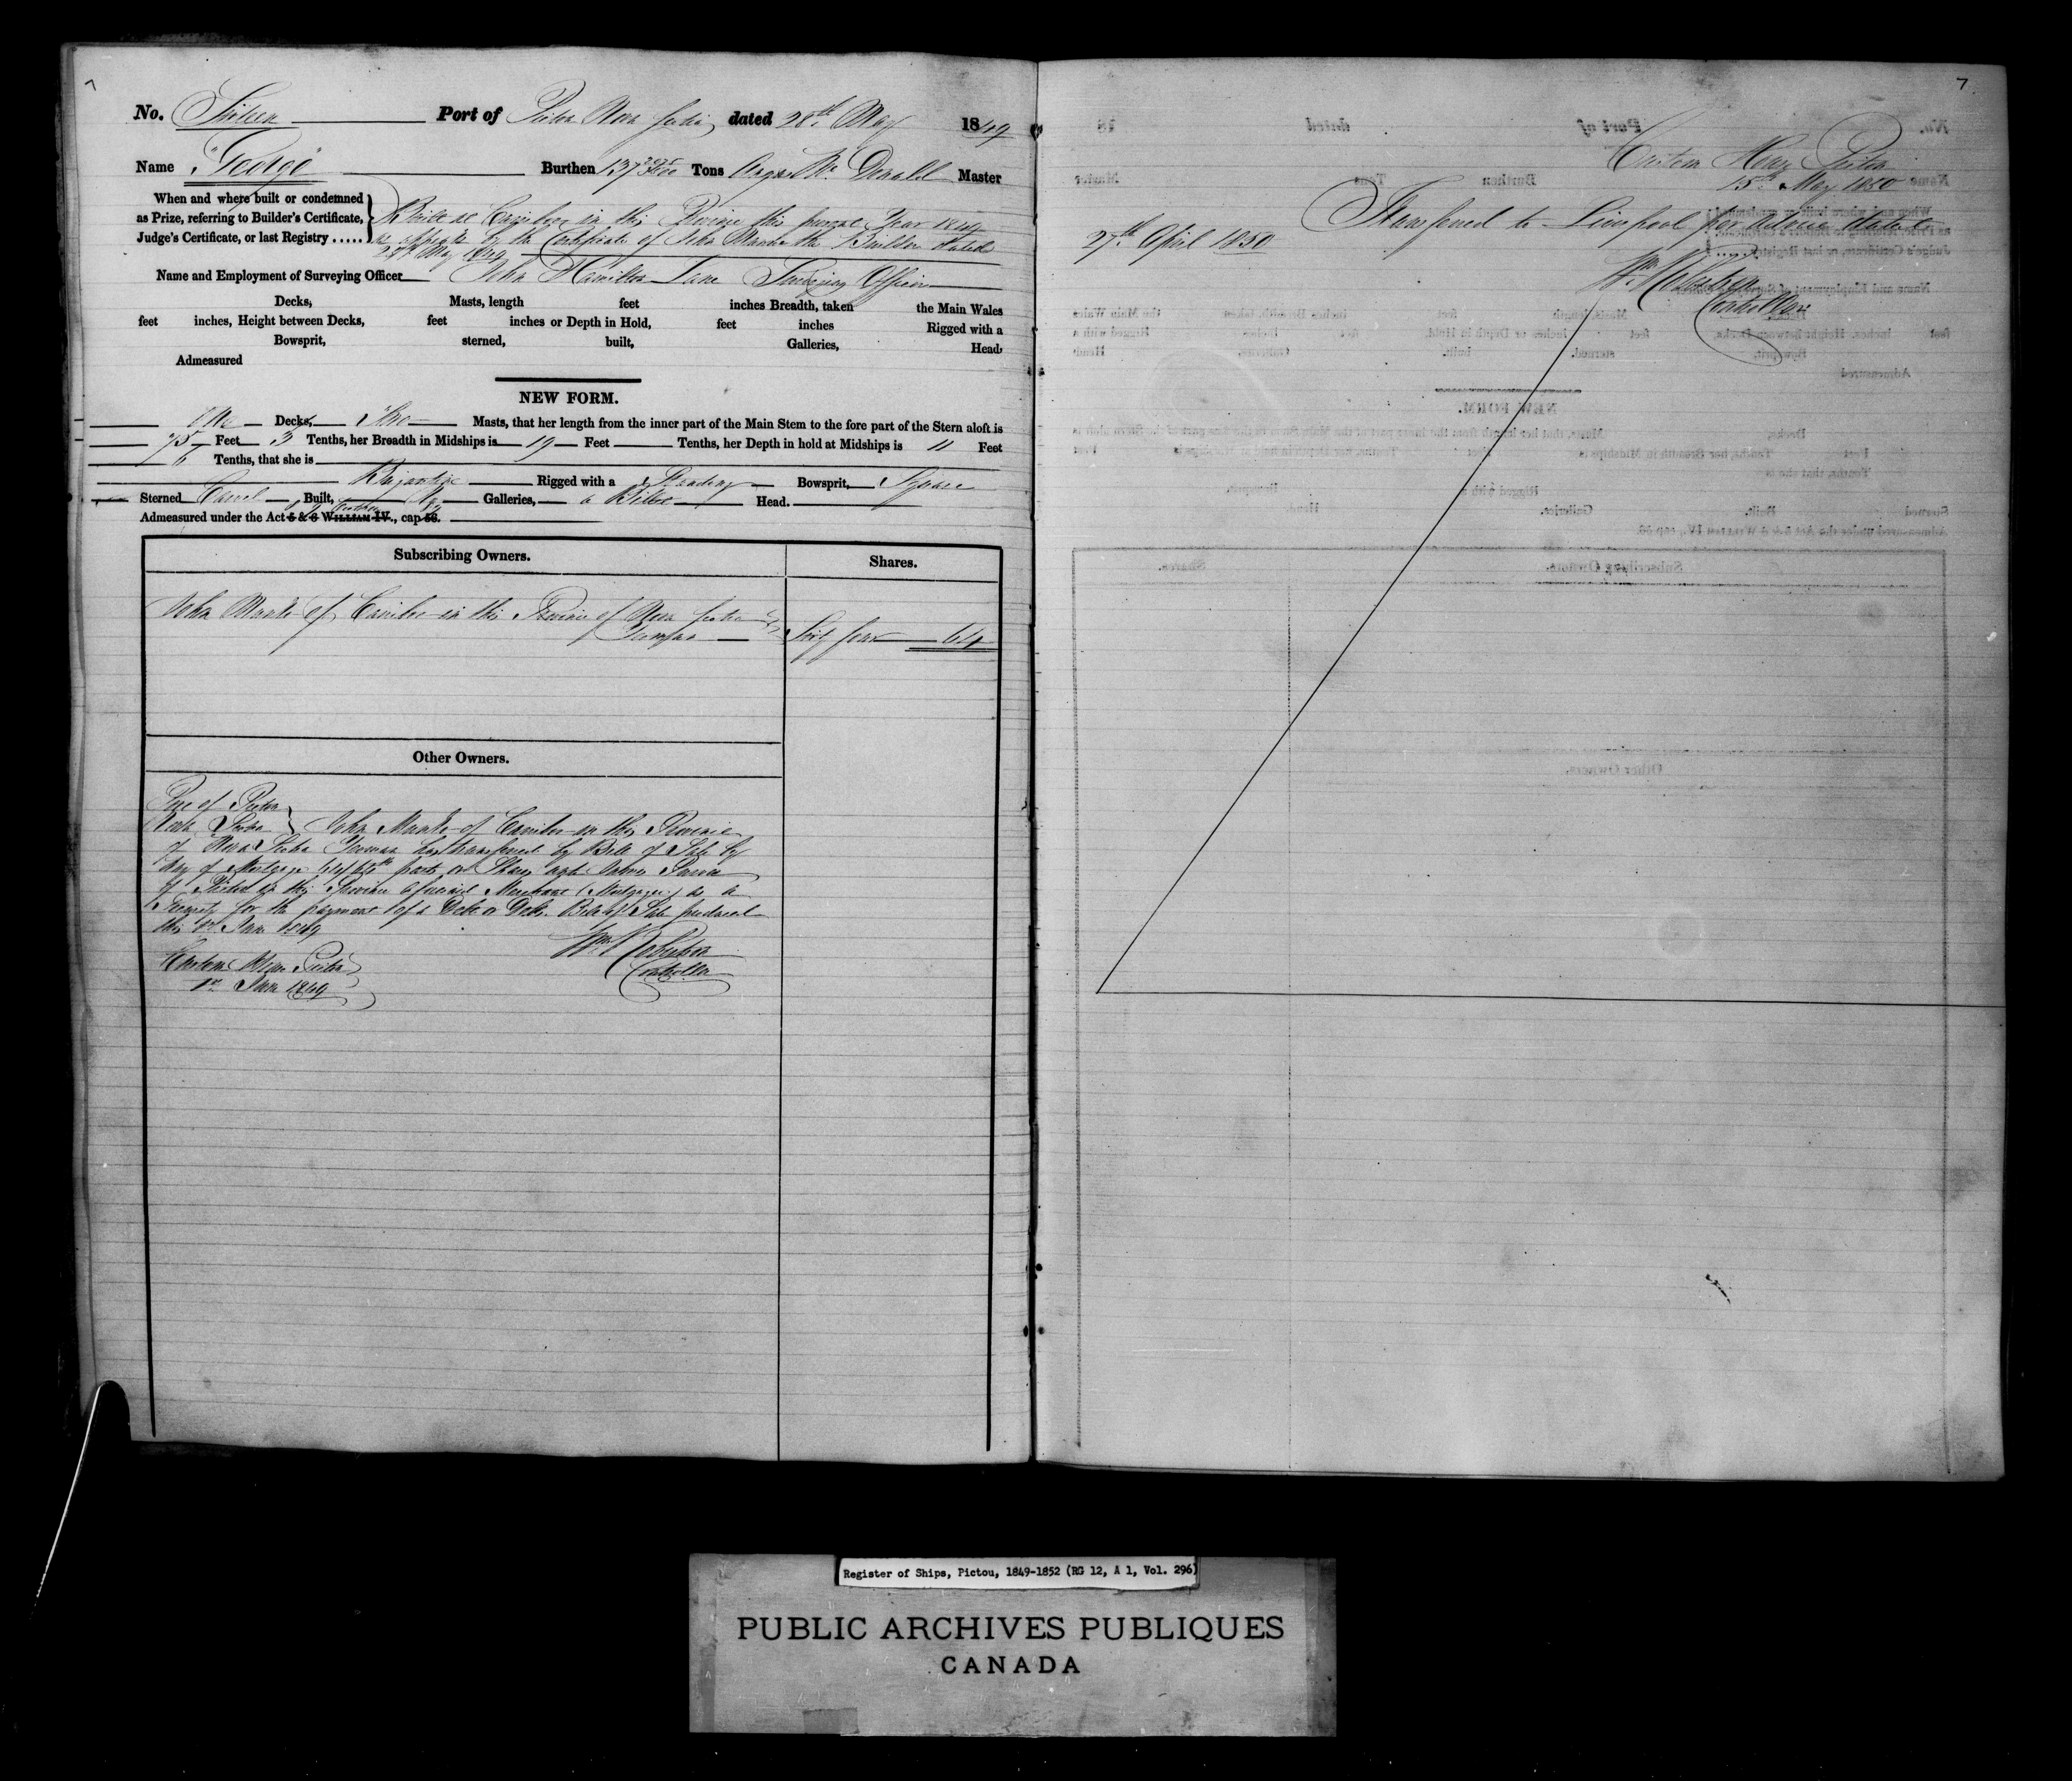 7
No. Port of Pictou Nova Scotia dated 28th May 1849
Name "George" Burthen 137 Tons Angus Mc Donald Master
When and where built or condemned
as Prize, referring to Builder's Certificate,
Judge's Certificate, or last Registry .....
Built at Cariboo in this Province this present Year 1849
as appears by the Certificate of John Munro the Builder dated
May 1849
Name and Employment of Surveying Officer John Hamilton Lane Surveying Officer
Decks, Masts, length feet inches Breadth, taken the Main Wales
feet inches, Height between Decks, feet inches or Depth in Hold, feet inches Rigged with a
Bowsprit, sterned, built, Galleries, Head,
Admeasured
NEW FORM.
One Decks, Two Masts, that her length from the inner part of the Main Stem to the fore part of the Stern aloft is
75 Feet 5 Tenths, her Breadth in Midships is 19 Feet Tenths, her Depth in hold at Midships is 11 Feet
6 Tenths, that she is
Brigantine Rigged with a Standing Bowsprit, Square
Sterned Carvel Built, No Galleries, a Billet Head.
Admeasured under the Act 5 & 6 WILLIAM IV., cap 56.
Subscribing Owners. Shares.
John Munro of Cariboo in the Province of Nova Scotia
Yeoman Sixty four 64
Other Owners.
Port of Pictou
Nova Scotia John Munro of Cariboo in the Province
of Nova Scotia Yeoman has transferred by Bill of Sale by
Way of Mortgage 64/64th parts or Shares unto James
of Pictou in this Province Merchant (Mortgagee) as a
Security for the payment of a Debt or Debts. Bill of Sale produced
this 1st June 1849
Wm Robertson
Controller
Custom House Pictou
1st June 1849
7
Custom House Pictou
15th May 1850
Transferred to Liverpool per advice dated
27th April 1850
Wm Robertson
Controller
Register of Ships, Pictou, 1849-1852 (RG 12, A 1, Vol. 296)
PUBLIC ARCHIVES PUBLIQUES
CANADA